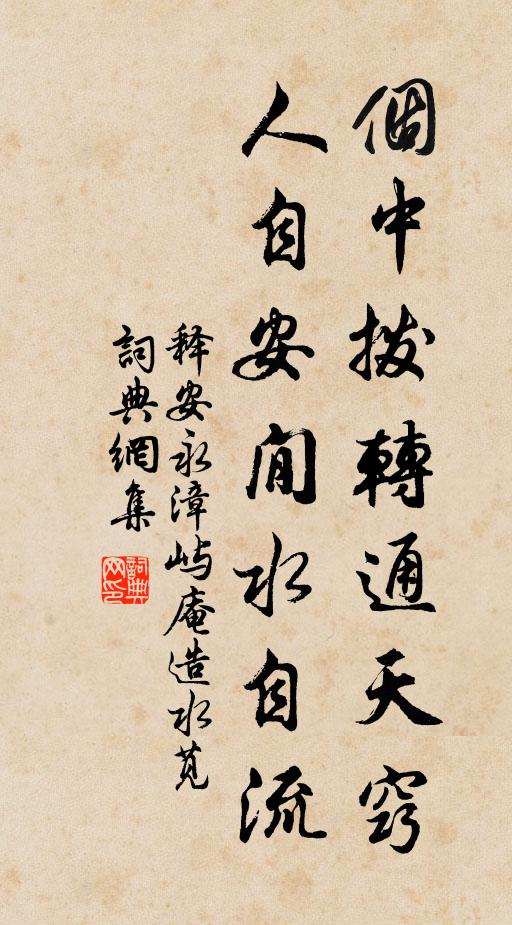 個中拨轉通天竅
人自安閒水自流
释安永漳屿庵造水筧
詞典網集
詞典网印